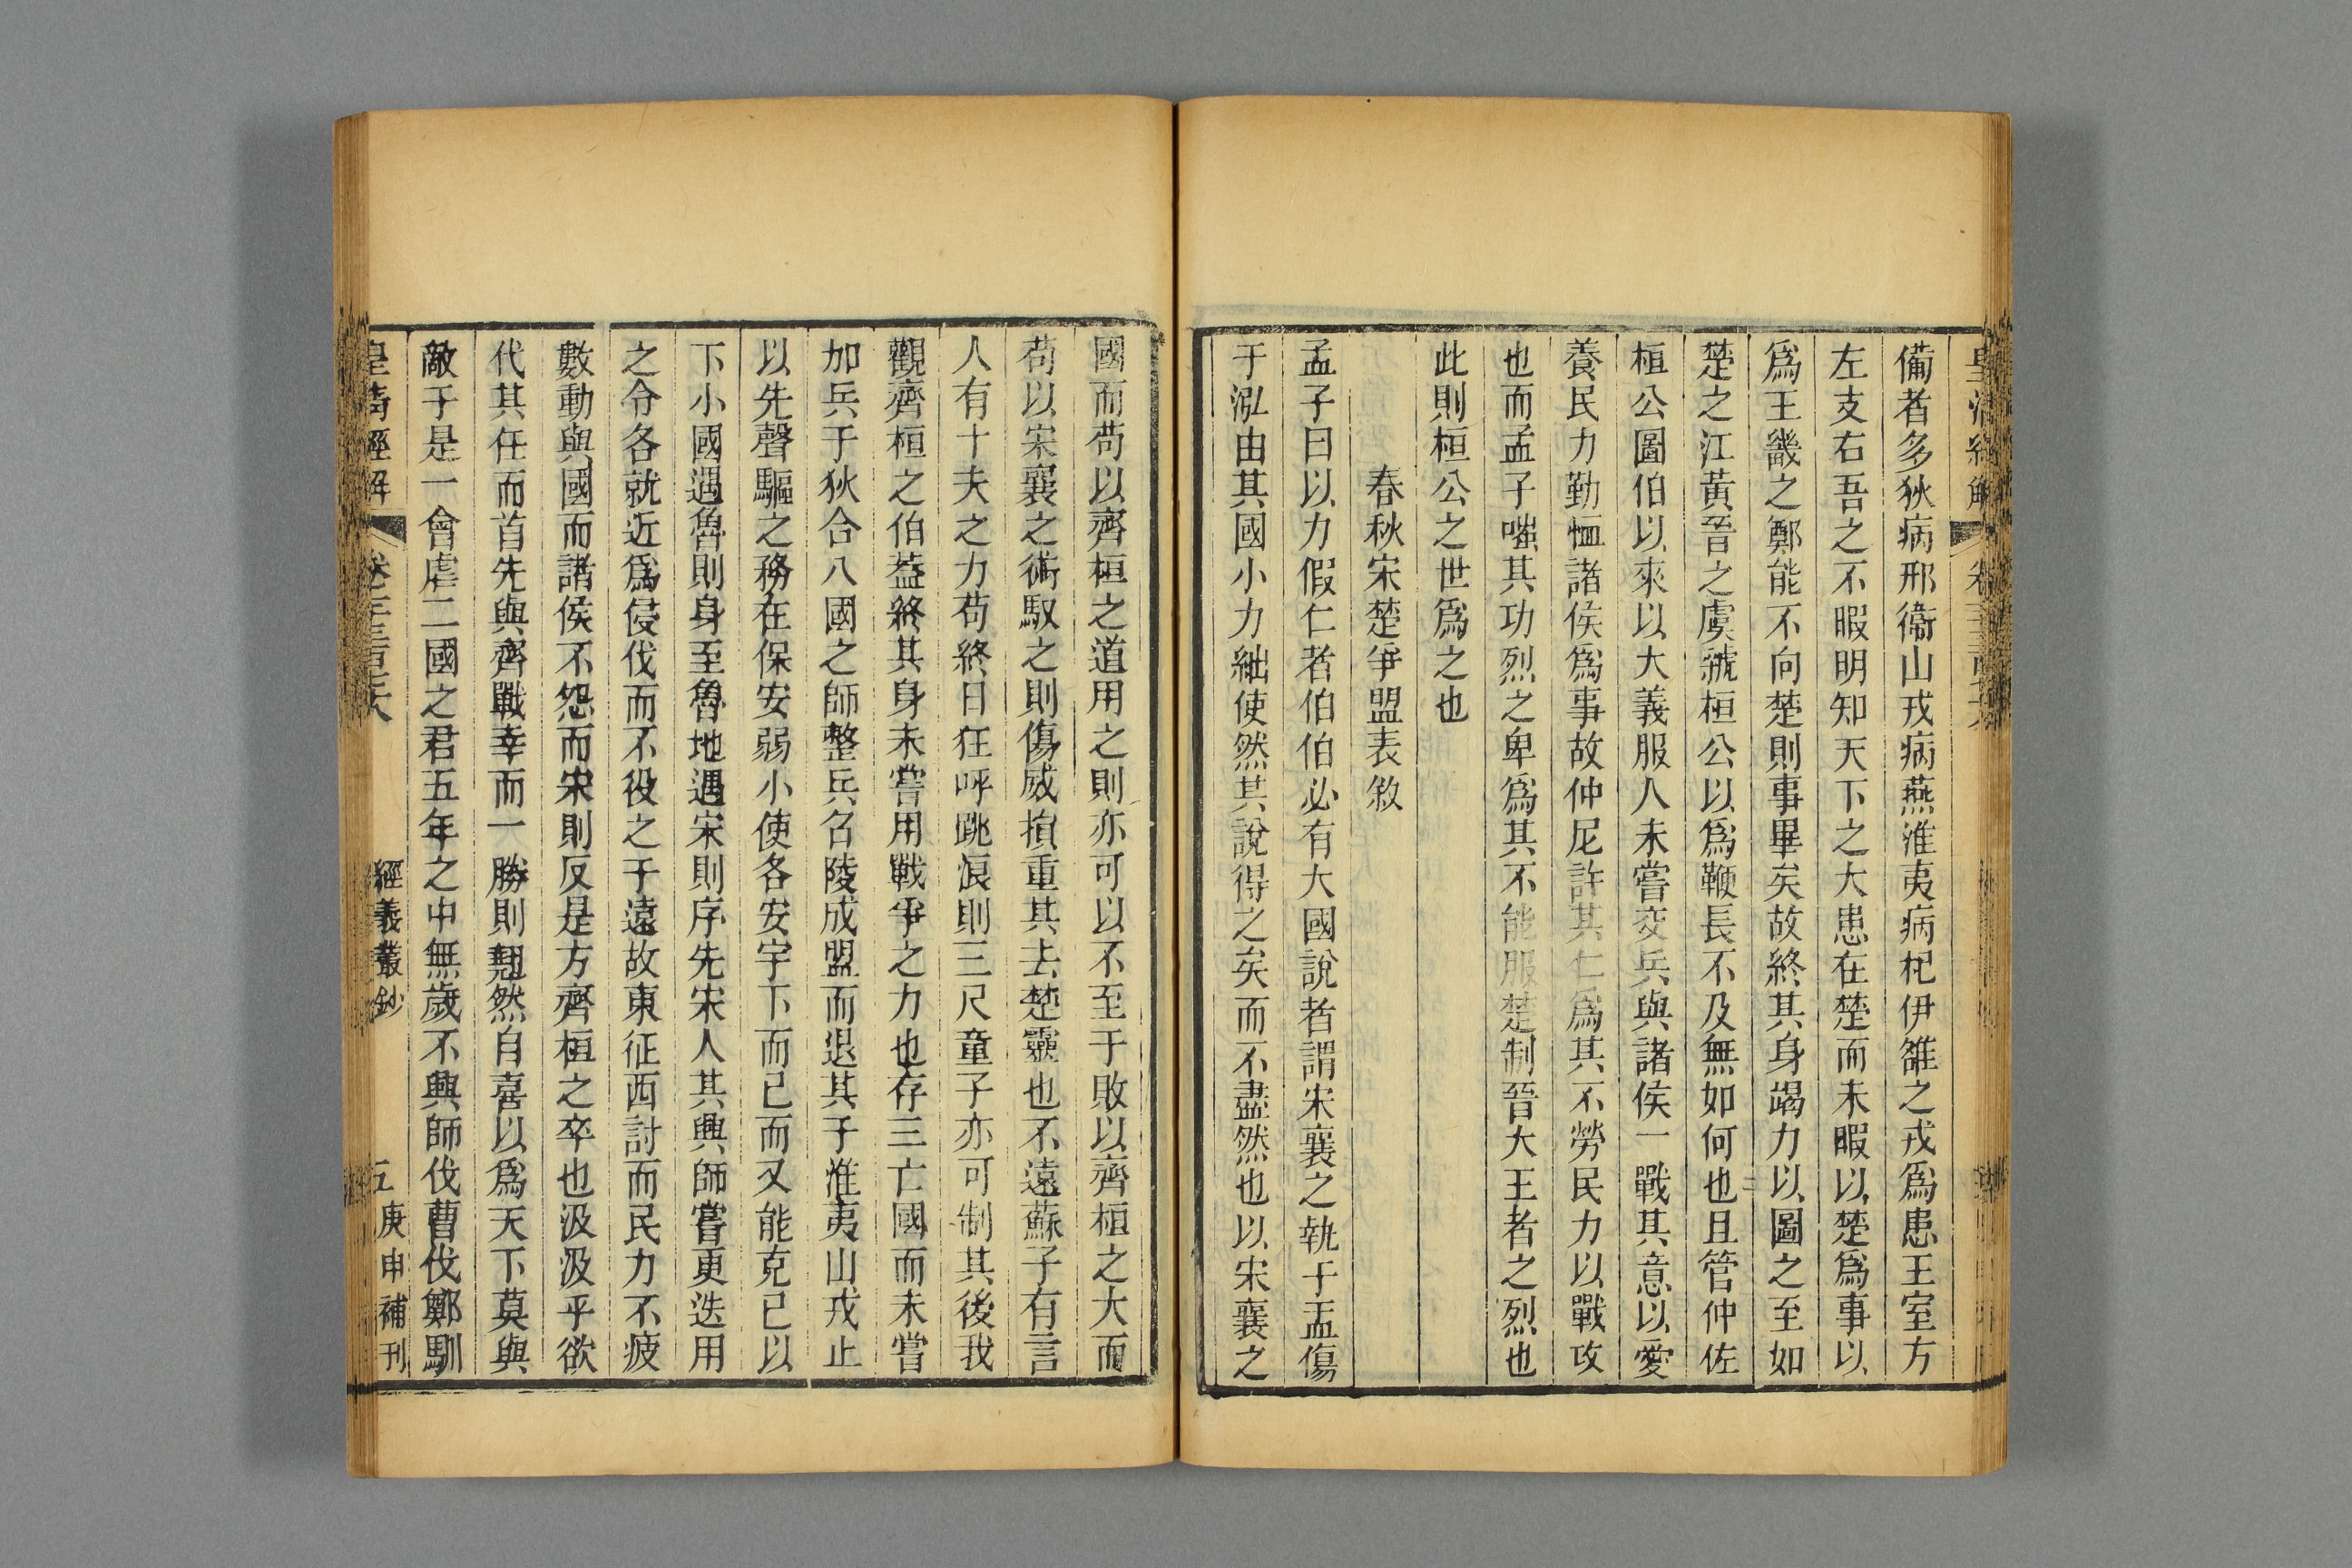 備者多狄病邢衞山戎病燕淮夷病杞伊雒之戎爲患王室方
左支右吾之不暇明知天下之大患在楚而未暇以楚爲事以
爲王畿之鄭能不向楚則事畢矣故終其身竭力以圖之至如
楚之江黃晉之虞虢桓公以爲鞭長不及無如何也且管仲佐
桓公圖伯以來以大義服人未嘗交兵與諸侯一戰其意以愛
養民力勤恤諸侯爲事故仲尼許其仁爲其不勞民力以戰攻
也而孟子嗤其功烈之卑爲其不能服楚制晉大王者之烈也
此則桓公之世爲之也
春秋宋楚爭盟表敘
孟子曰以力假仁者伯伯必有大國說者謂宋襄之執于盂傷
于泓由其國小力絀使然其說得之矣而不盡然也以宋襄之
國而苟以齊桓之道用之則亦可以不至于敗以齊桓之大而
苟以宋襄之術馭之則傷威損重其去楚靈也不遠蘇子有言
人有十夫之力苟終日狂呼跳浪則三尺童子亦可制其後我
觀齊桓之伯葢終其身未嘗用戰爭之力也存三亡國而未嘗
加兵于狄合八國之師整兵召陵成盟而退其于淮夷山戎止
以先聲驅之務在保安弱小使各安宇下而已而又能克已以
下小國遇魯則身至魯地遇宋則序先宋人其興師嘗更迭用
之令各就近爲侵伐而不役之于遠故東征西討而民力不疲
數動與國而諸侯不怨而宋則反是方齊桓之卒也汲汲乎欲
代其任而首先與齊戰幸而一勝則翹然自喜以爲天下莫與
敵于是一會虐二國之君五年之中無歲不興師伐曹伐鄭馴
皇清經解
經義叢鈔
五
庚申補刊